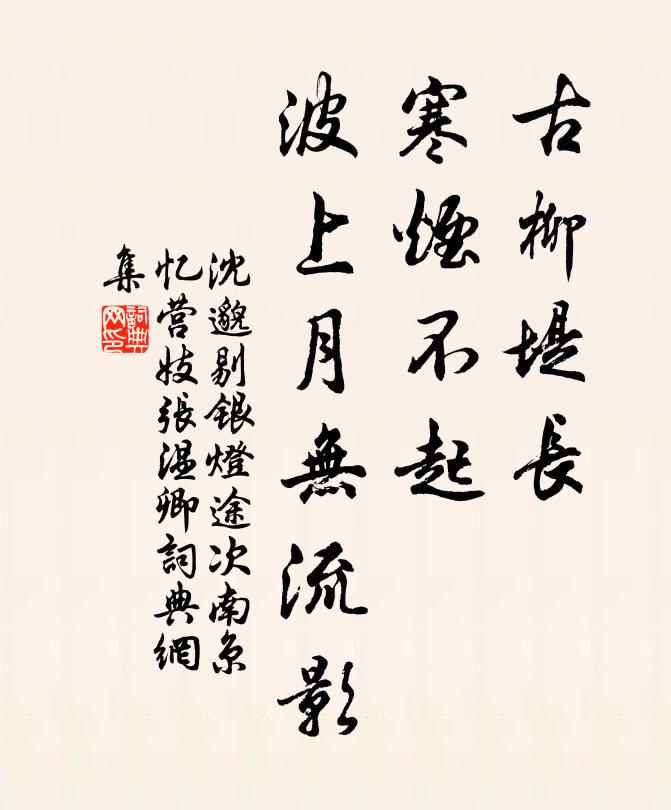 古柳堤長
寒煙不起
波上月無流影
沈邈剔銀燈途次南京
忆营妓張温卿詞典網
集
詞典
网印